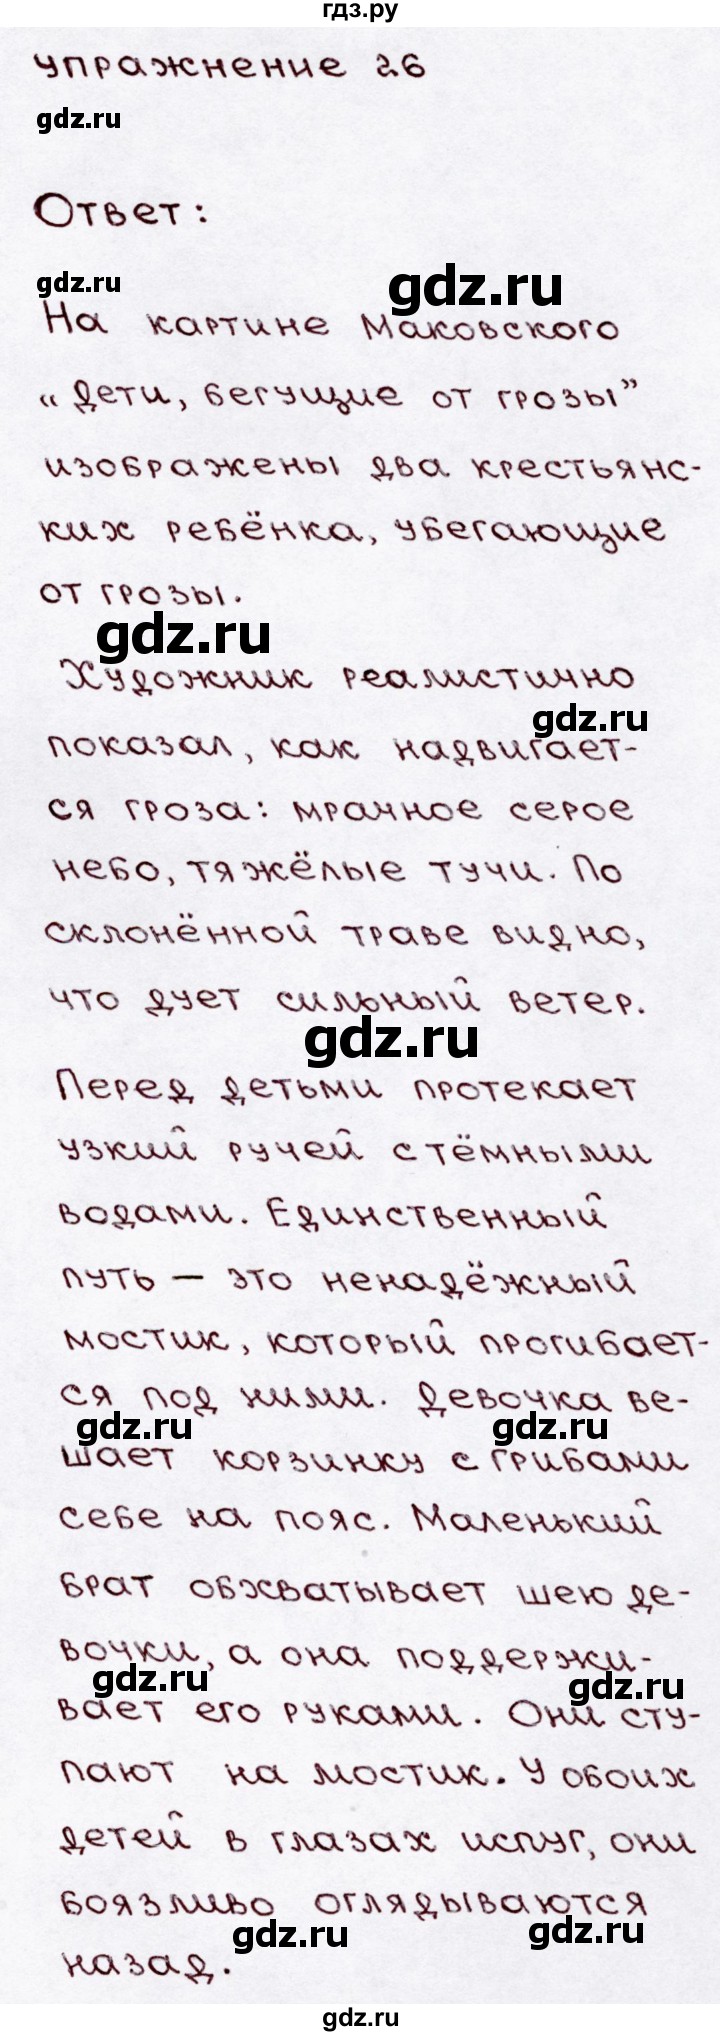 гдз.ру
упражнение 26
gdz.ru
Ответ:
gdz.ru
gdz.ru
На картине Маковского
„Дети, бегущие от грозы”
изображены два крестьянс-
ких ребёнка, убегающие
от грозы.
gdz.ru
Художник реалистично
gdz.ru
показал, как надвигает-
ся гроза: мрачное серое
небо, тяжёлые тучи. По
склонённой траве видно,
что дует сильный ветер.
gdz.ru
Перед детьми протекает
узкий ручей с тёмными
водами. Единственный
путь – это ненадёжный
мостик, который прогибает-
ся под ними. Девочка ве-
gdz.ru
gdz.ru
шает корзинку с грибами
себе на пояс. Маленький
брат обхватывает шею де-
вочки, а она поддержи-
gdz.ru
gdz.ru
вает его руками. Они сту-
пают на мостик. У обоих
детей в глазах испуг, они
боязливо оглядываются
gdz.ru
gdz.ru
назад.
gdz.ru